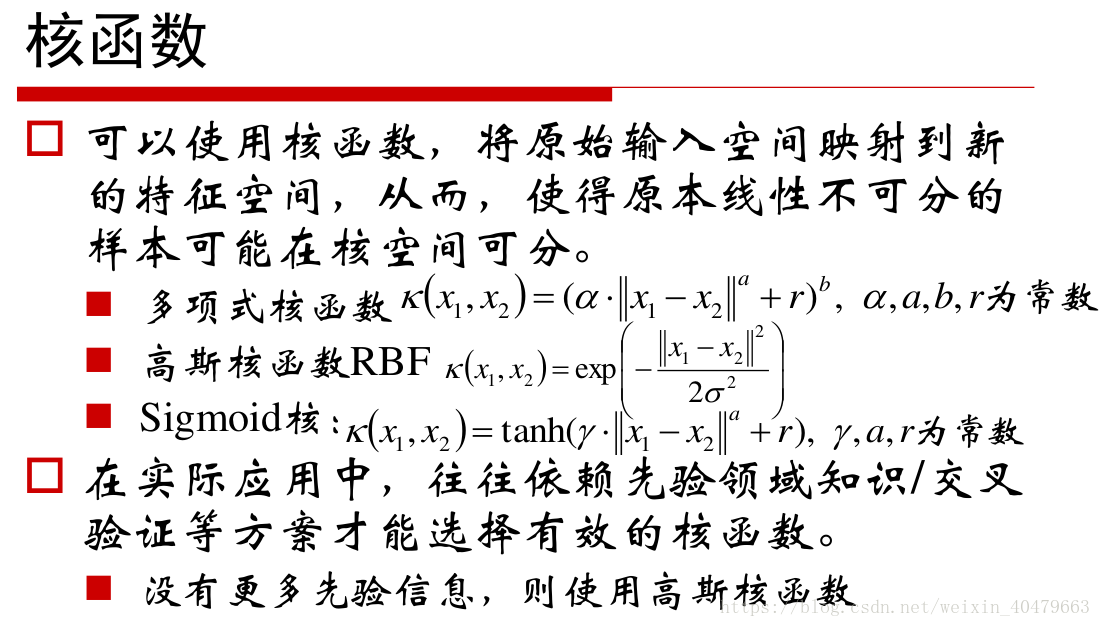 核函数
可以使用核函数，将原始输入空间映射到新
的特征空间，从而，使得原本线性不可分的
样本可能在核空间可分。
多项式核函数 κ(x₁, x₂) = (α·‖x₁ − x₂‖ᵃ + r)ᵇ, α, a, b, r为常数
高斯核函数RBF κ(x₁, x₂) = exp(−‖x₁ − x₂‖² / 2σ²)
Sigmoid核：κ(x₁, x₂) = tanh(γ·‖x₁ − x₂‖ᵃ + r), γ, a, r为常数
在实际应用中，往往依赖先验领域知识/交叉
验证等方案才能选择有效的核函数。
没有更多先验信息，则使用高斯核函数
https://blog.csdn.net/weixin_40479663